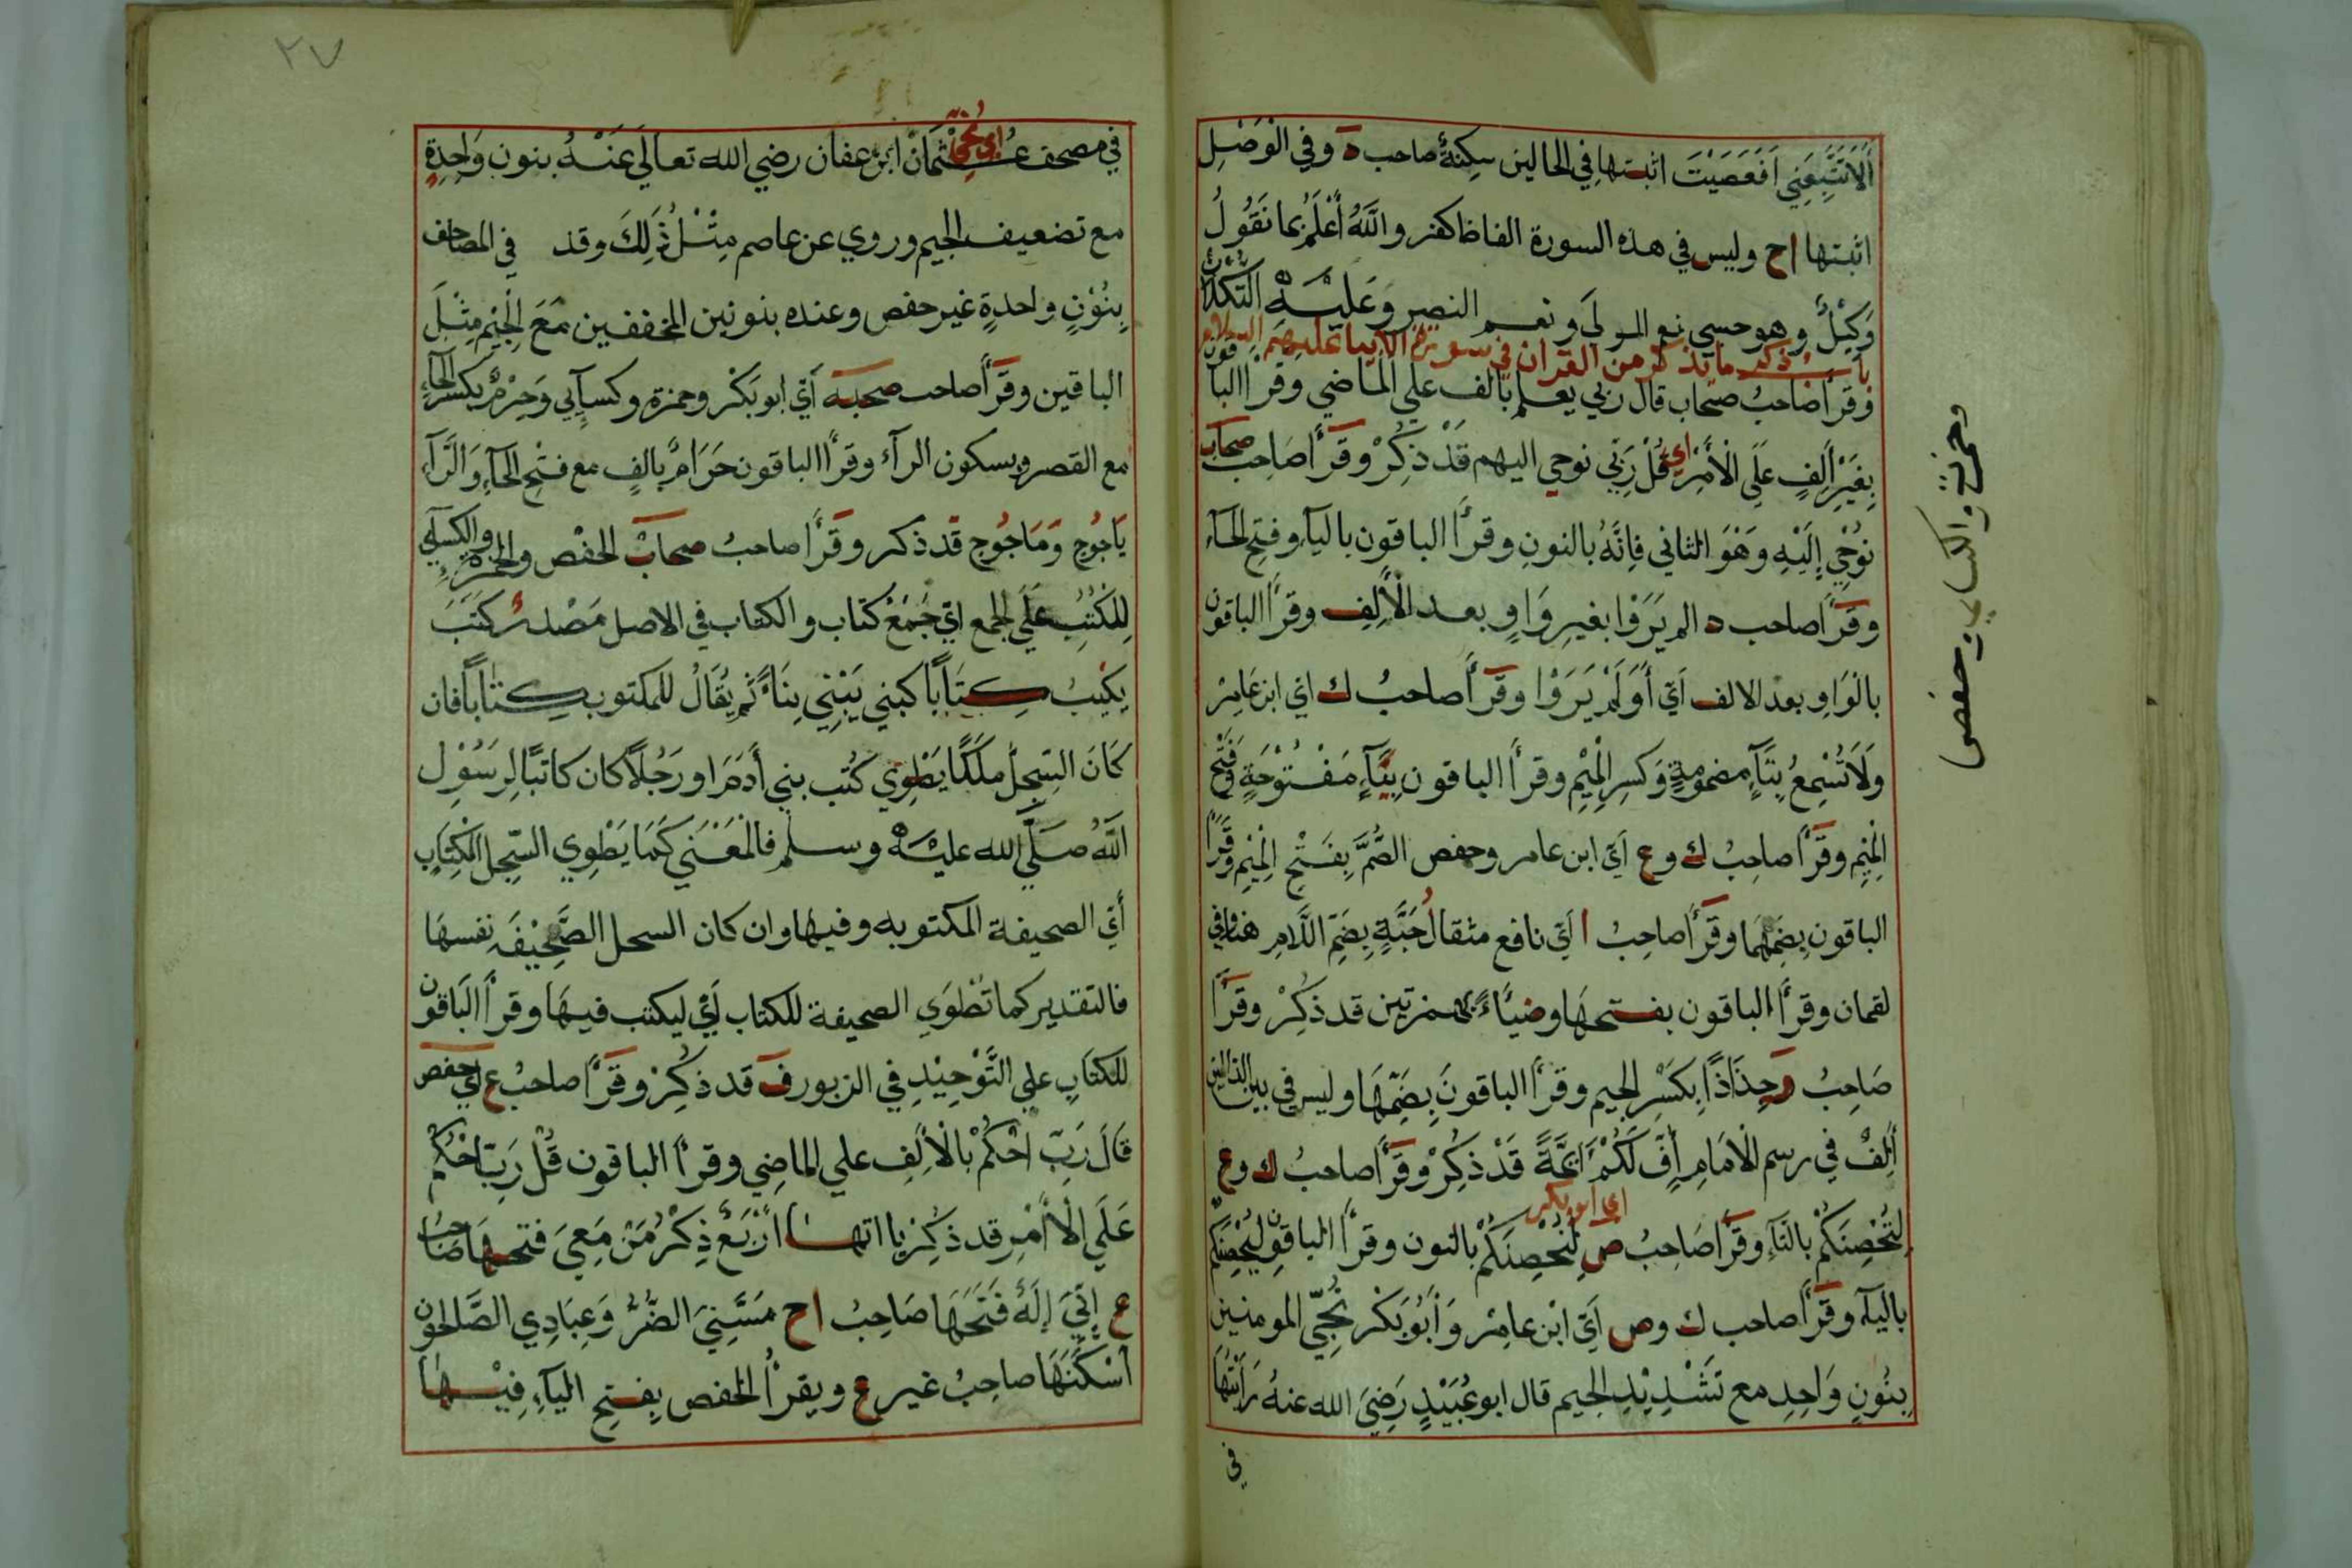 أَلَّا تَتَّبِعَنِي أَفَعَصَيْتَ اثبتها في الحالين سكنه صاحب ه وفي الوَصْلِ
اثبتها اح وليس في هذه السورة الفاظ اكفر واللَّهُ أَعْلَمُ بما نَقُولُ
وَكِيْلٌ وهو حسبي نعم المولَى ونعم النصير وَعَلَيْهِ التُّكْلَانُ
باب ذكر ما يذكر من القران في سورة الانبياء عليهم السلام
وقَرَأَ صَاحبُ صحاب قال ربي يعلم بالف على الماضي وقرأ الباقون
بِغَيْرِ أَلِفٍ عَلَى الْأَمْرِ اي قُلْ رَبِّي نوحي اليهم قَدْ ذُكِرْ وقَرَأَ صَاحِبُ صحاب
نُوْحِي إِلَيْهِ وَهْوَ الثاني فَإِنَّهُ بالنونِ وقرأ الباقون بالياءِ وفتحِ الحآء
وقَرَأَ صاحب ه الم يَرَوْا بغيرِ وَاوٍ بعد الْأَلِفِ وقرأَ الباقون
بالْوَاوِ بعد الالف اَيْ أَوَلَمْ يَرَوْا وقَرَأَ صاحبُ ك اي ابن عَامِرْ
ولَا تُسْمِعُ بِتَآءٍ مضمومةٍ وَكسرِ الْمِيْمِ وقرأَ الباقون بِيَآءٍ مَفْتُوْحَةٍ وَفَتْحِ
الْمِيْمِ وقَرَأَ صاحِبُ ك وع اَيْ ابن عامر وحفص الصُّمُّ بِفَتْحِ الْمِيْمِ وقَرَأَ
الباقون بِضَمِّهَا وقَرَأَ صاحِبُ ا اَيْ نافع مثقالُ حَبَّةٍ بِضَمِّ اللَّامِ هنا وفي
لقمان وقرأَ الباقون بفتحهَا وضِيَآءً بهمزتين قد ذُكِرْ وقَرَأَ
صَاحِبُ ر جِذَاذًا بِكَسْرِ الجيم وقرأَ الباقونَ بِضَمِّهَا وليس في بين الذالين
أَلِفٌ في رسم الْأمَامِ أُفٍّ لَكُمْ أَئِمَّةً قَدْ ذُكِرْ وقَرَأَ صاحبُ ك وع
اي ابو بكر
لِتُحْصِنَكُمْ بالتَّآءِ وقَرَأَ صَاحِبُ ص لِنُحْصِنَكُمْ بالنون وقرأَ الباقون لِيُحْصِنَكُمْ
باليآء وقَرَأَ صاحب ك وص اَيْ ابْن عامِرْ وَأَبُوبَكْرْ نُجِّي المومنين
بِنُوْنٍ وَاحِدٍ مع تَشْدِيْدِ الجيم قال ابوعُبَيْدٍ رَضِيَ الله عنهُ رَأَيْتُهَا
في
وحمزة والكسائي حفص
٢٧
اي نُجِّي
في مصحف عُثْمَانْ ابن عفان رضي الله تعالَى عَنْهُ بنون وَاحِدَةٍ
مع تضعيف الجيم وروي عن عاصم مِثْلُ ذَلِكَ وقد في المصاحف
بِنُوْنٍ واحدةٍ غير حفص وعنده بنونين المخففين مَعَ الْجِيْمِ مِثْلَ
الباقين وقَرَأَ صاحب صحبة اَيْ ابوبَكْرْ وحمزة وكسآيي وَحِرْمٌ بكسر الحآءِ
مع القصر وبسكون الرآء وقرأَ الباقون حَرَامٌ بالفٍ مع فتحِ الحآءِ وَالرَّآءِ
يَأجُوج وَمَاجُوج قد ذكر وقَرَأَ صاحبُ صحاب الحفص والحمزة والكسآيي
لِلكُتُبِ عَلَى الجمع اَيْ جَمَعْ كتاب والكتاب في الاصل مَصْدَرُ كَتَبَ
يكتبُ كِتَابًا كبني يَبْنِي بِنَآءً ثم يُقَالُ للمكتوب كِتَابًا فان
كَانَ السِّجِلُّ ملَكًا يَطْوِي كُتُب بني أَدَمَ او رَجُلًا كان كاتبًا لِرَسُوْلِ
اللَّهِ صَلَّى الله عليْهِ وسلم فالْمَعْنَى كَمَا يَطْوِي السِّجِلُ الْكِتَابِ
أَيْ الصحيفة المكتوبه وفيها وان كان السجل الصَّحِيْفَه نفسهَا
فالتقدير كما تُطْوَى الصحيفة للكتاب اَيْ ليكتب فيهَا وقرأَ الباقون
للكتَابِ على التَّوْحِيْدِ في الزبور ف قد ذكِرْ وقَرَأَ صاحبُ ع اي حفص
قَالَ رَبِّ احْكُمْ بالْأَلِفِ علي الماضِي وقرأَ الباقون قُلْ رَبِّ احْكُم
عَلَى الْأَمْرِ قد ذكِرْ يااتها أَرْبَعْ ذِكْرُ مَنْ مَعِيَ فتحهَا صَاحبُ
ع إِنِّيَ إِلَهٌ فَتَحَهَا صَاحِبُ اح مَسَّنِيَ الضُّرُّ وَعِبَادِي الصَّالحون
أَسْكَنَهَا صاحِبُ غير ع ويقرأُ الحفص بِفتحِ اليآءِ فِيْهَا